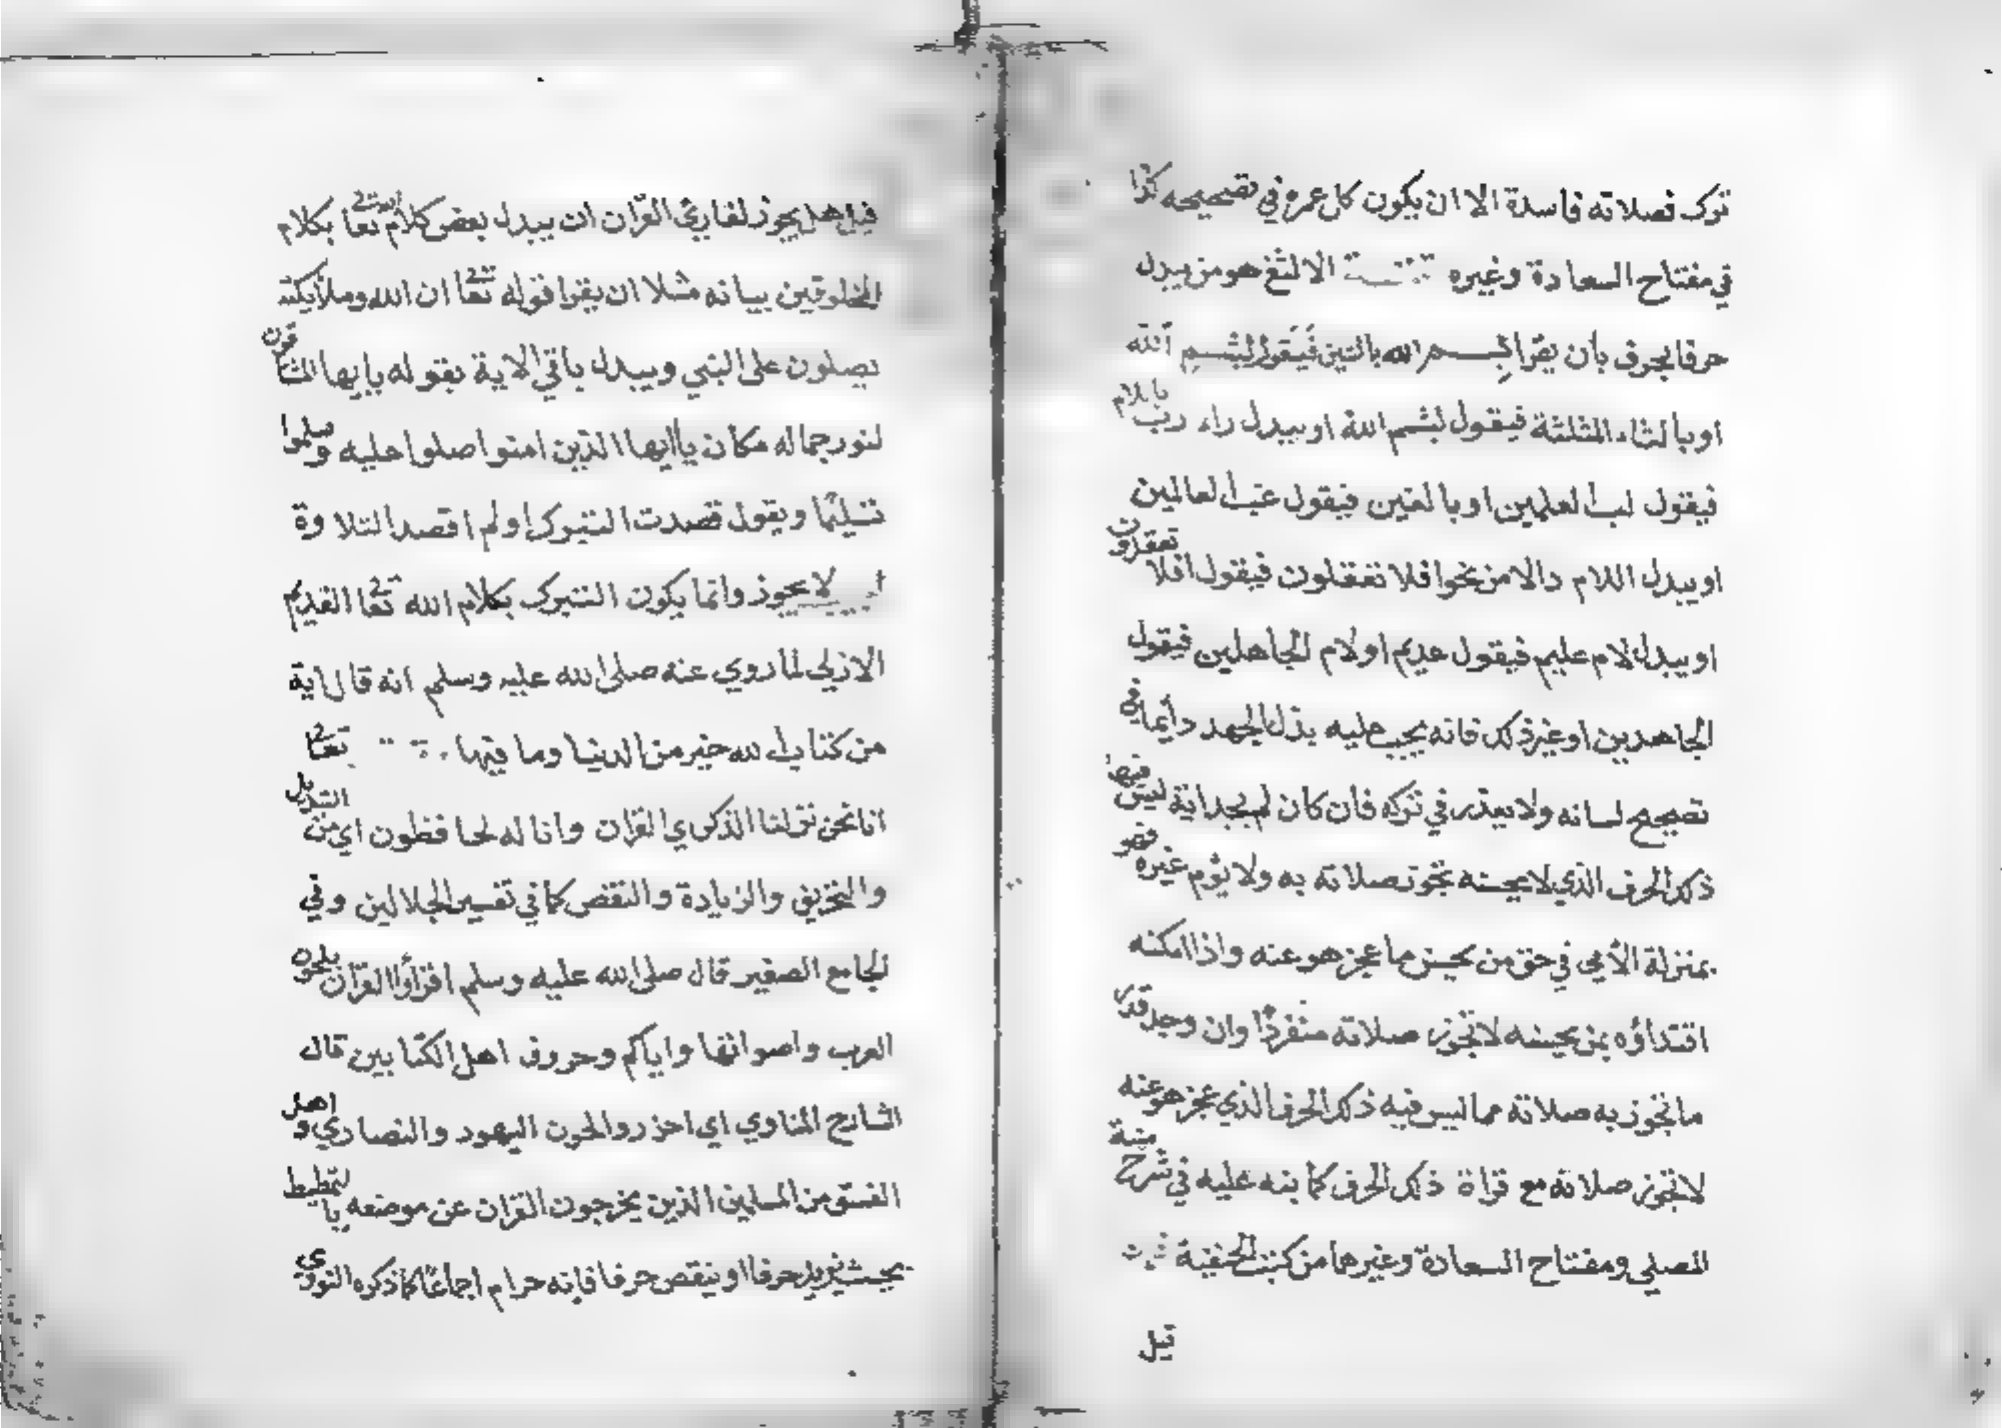 ترك فصلاته فاسدة الا ان يكون كل عمره في تصحيحه كذا
في مفتاح السعادة وغيره الالثغ هو من يبدل
حرفا بحرف بان يقرا بسم الله بالشين فيقول بشم الله
او بالثاء المثلثة فيقول بثم الله او يبدل راء رب بالام
فيقول لب العلمين او بالغين فيقول غب العالمين
او يبدل اللام دالا من نحو افلا تعقلون فيقول افلا تعقدون
او يبدل لام عليم فيقول عديم او لام الجاهلين فيقول
الجاهدين او غير ذلك فانه يجب عليه بذل الجهد دايما في
تصحيح لسانه ولا يعذر في تركه فان كان لم يجد اية ليس فيها
ذلك الحرف الذي لا يحسنه تجوز صلاته به ولا يؤم غيره فهو
بمنزلة الأمي في حق من يحسن ما عجز هو عنه واذا امكنه
اقتداؤه بمن يحسنه لا تجوز صلاته منفردًا وان وجد قدر
ما تجوز به صلاته مما ليس فيه ذلك الحرف الذي عجز هو عنه
لا تجوز صلاته مع قراة ذلك الحرف كما بنه عليه في شرح منية
المصلي ومفتاح السعادة وغيرهما من كتب الحنفية
قيل
قيل هل يجوز لقارئ القران ان يبدل بعض كلام الله تعا بكلام
المخلوقين بيانه مثلا ان يقرا قوله تعا ان الله وملائكته
يصلون على النبي ويبدل باقي الاية بقوله يايها المشاقون
لنور جماله مكان ياايها الذين امنوا صلوا عليه وسلموا
تسليمًا ويقول قصدت التبرك ولم اقصد التلاوة
لا يجوز وانما يكون التبرك بكلام الله تعا القديم
الازلي لما روي عنه صلى الله عليه وسلم انه قال اية
من كتاب الله خير من الدنيا وما فيها تعا
انا نحن نزلنا الذكر اي القران وانا له لحافظون اي من التبديل
والتحريف والزيادة والنقص كما في تفسير الجلالين وفي
الجامع الصغير قال صلى الله عليه وسلم اقرأوا القران بلحون
العرب واصواتها واياكم وحروف اهل الكتابين قال
الشارح المناوي اي احذروا لحون اليهود والنصارى واهل
الفسق من المسلمين الذين يخرجون القران عن موضعه بالتمطيط
بحيث يزيد حرفا او ينقص حرفا فانه حرام اجماعًا كما ذكره النووي